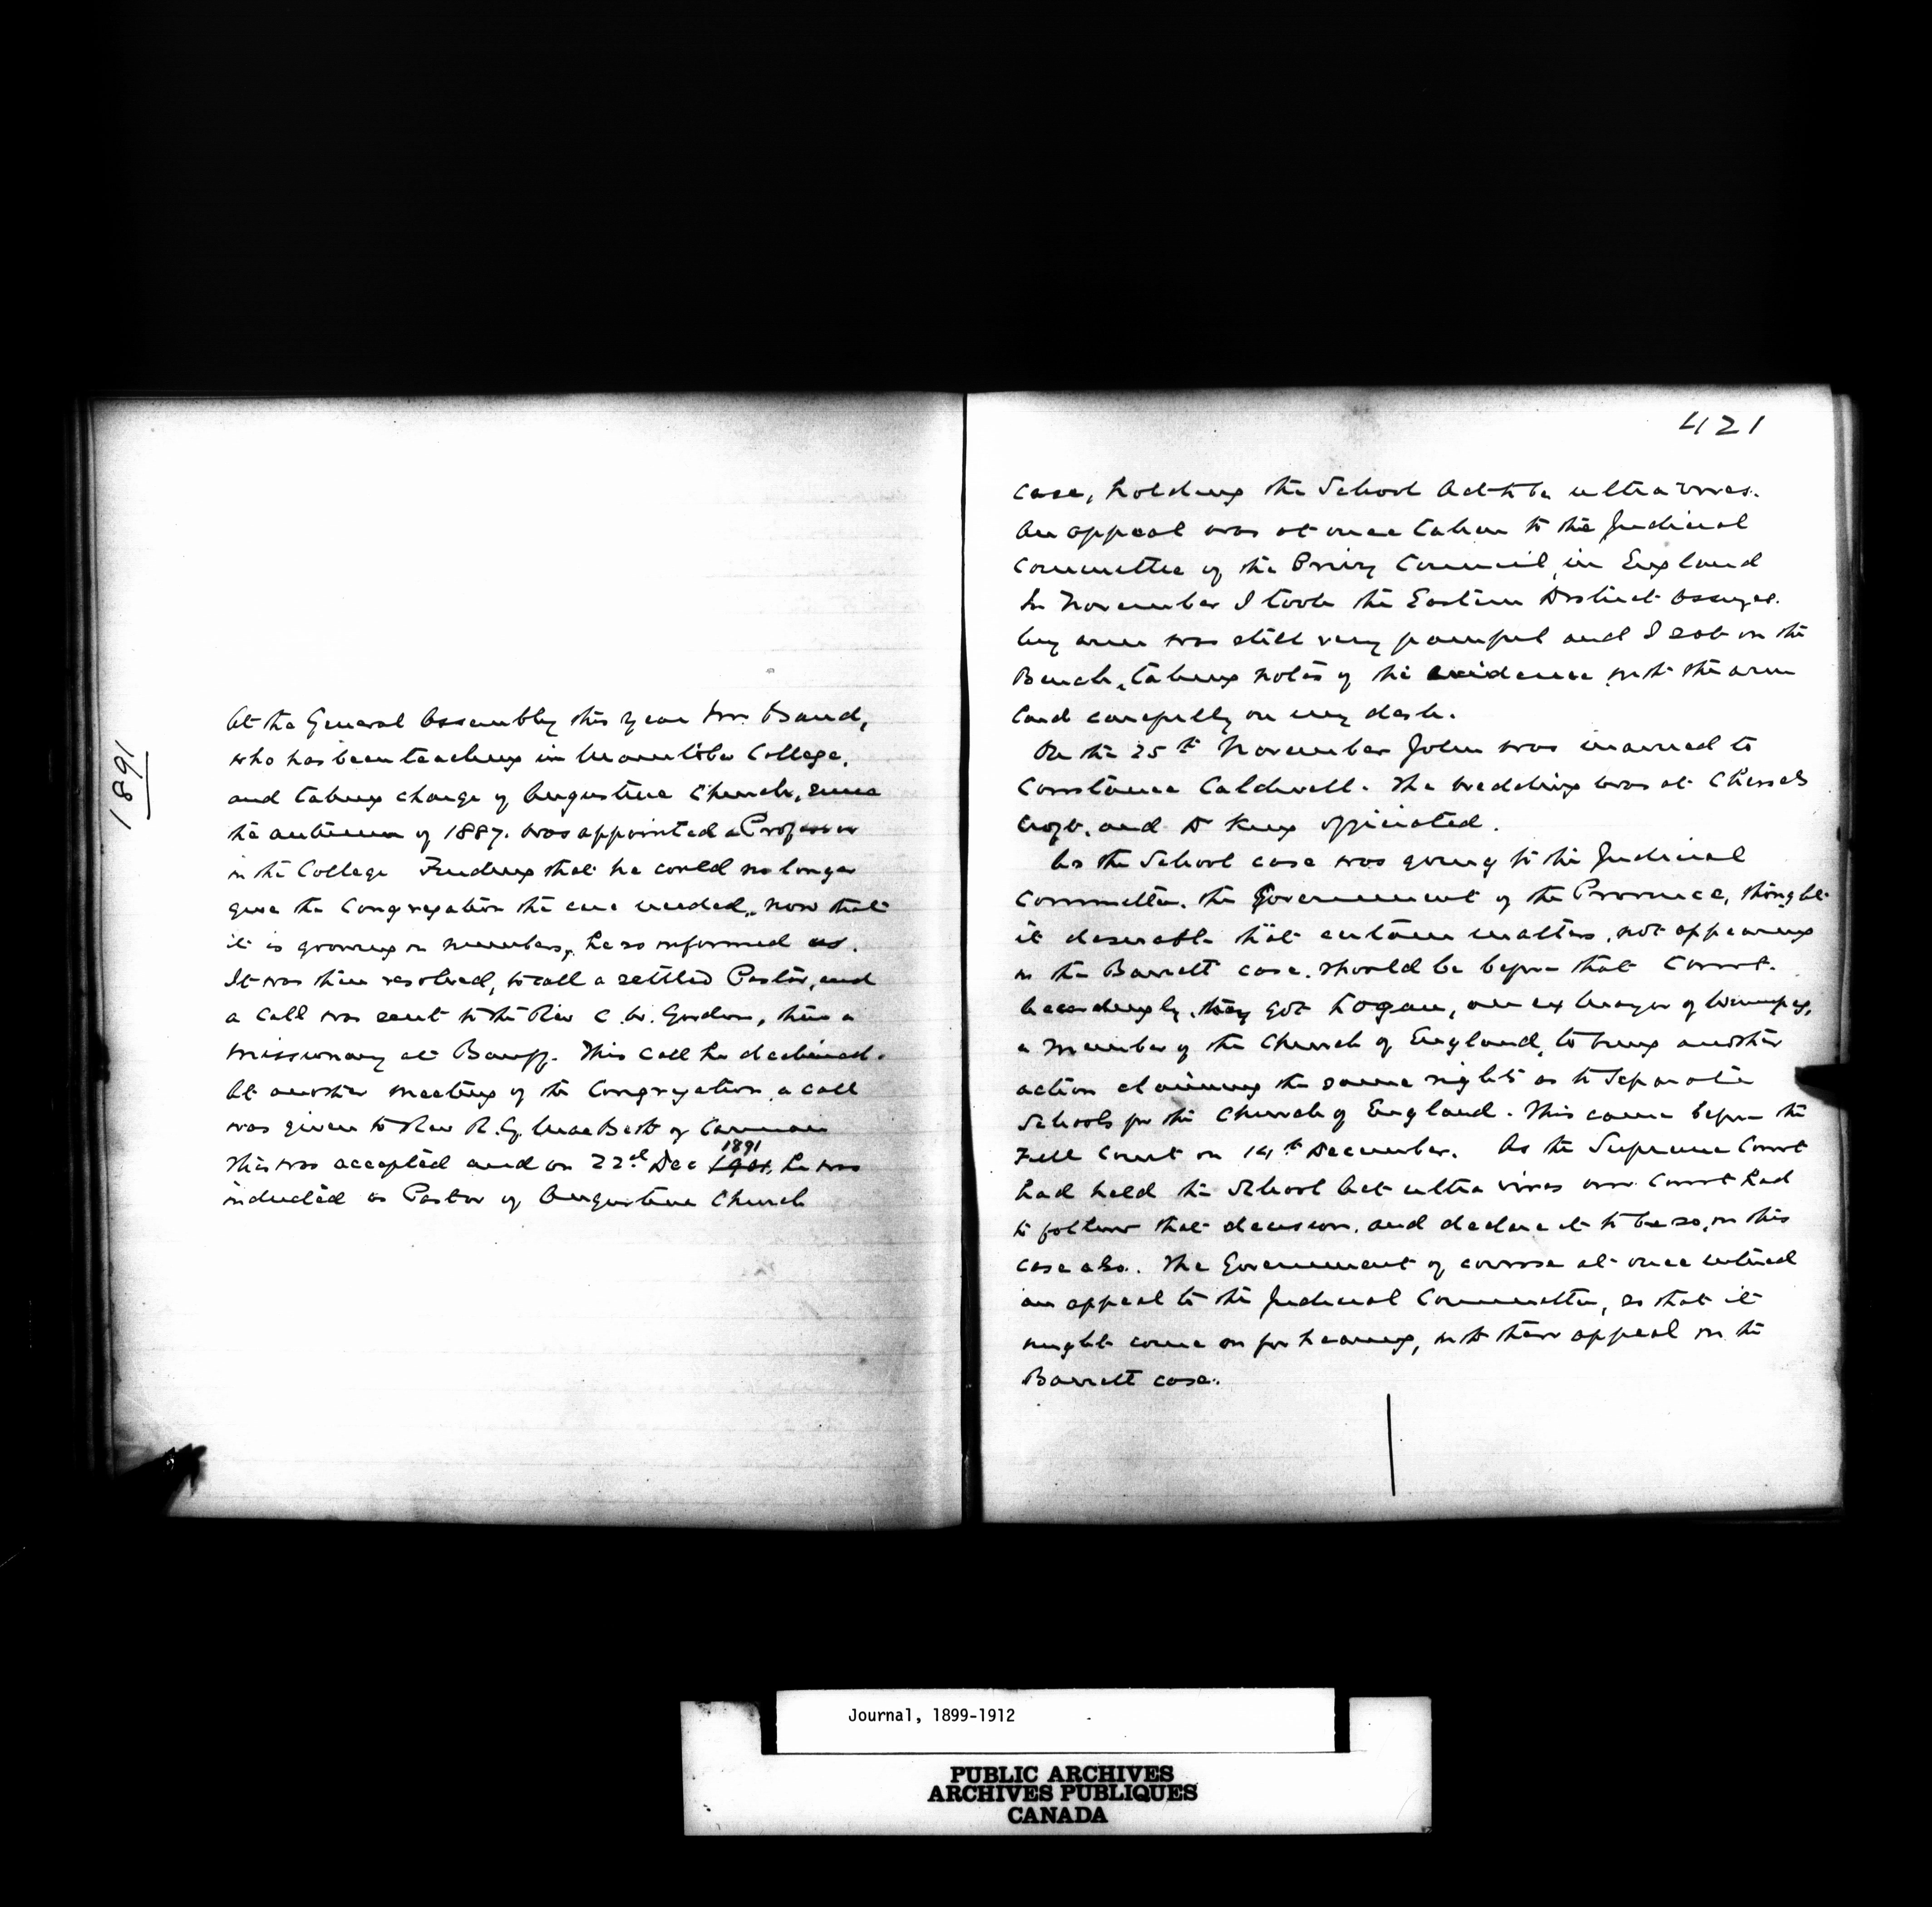 1891
At the General Assembly this year Mr. Baird,
who has been teaching in Manitoba College,
and taking charge of Augustine Church, since
the autumn of 1887. was appointed a Professor
in the College Finding that he could no longer
give the Congregation the care needed, now that
it is growing in numbers, he so informed us.
It was then resolved, to call a settled Pastor, and
a call was sent to the Rev C. W. Gordon, then a
missionary at Banff. This call he declined.
At another meeting of the Congregation, a call
was given to Rev R. G. MacBeth of Carman
1891
This was accepted and on 22d Dec 1901, he was
inducted as Pastor of Augustine Church
421
case, holding the School Act to be ultra vires.
An appeal was at once taken to the Judicial
Committee of the Privy Council, in England
In November I took the Eastern District Assizes.
My arm was still very painful and I sat on the
Bench, taking notes of the evidence with the arm
laid carefully on my desk.
On the 25th November John was married to
Constance Caldwell. The wedding was at
and Dr King officiated.
As the School case was going to the Judicial
Committee. the Government of the Province, thought
it desirable that certain matters, not appearing
in the Barrett case. should be before that Court.
Accordingly, they got Logan, an ex Mayor of Winnipeg,
a member of the Church of England, to bring another
action claiming the same rights as to Separate
Schools for the Church of England. This came before the
Full Court on 14th December. As the Supreme Court
had held the School Act ultra vires our Court had
to follow that decision. and declare it to be so, in this
case also. The Government of course at once entered
an appeal to the Judicial Committee, so that it
might come on for hearing, with their appeal in the
Barrett case.
Journal, 1899-1912
PUBLIC ARCHIVES
ARCHIVES PUBLIQUES
CANADA